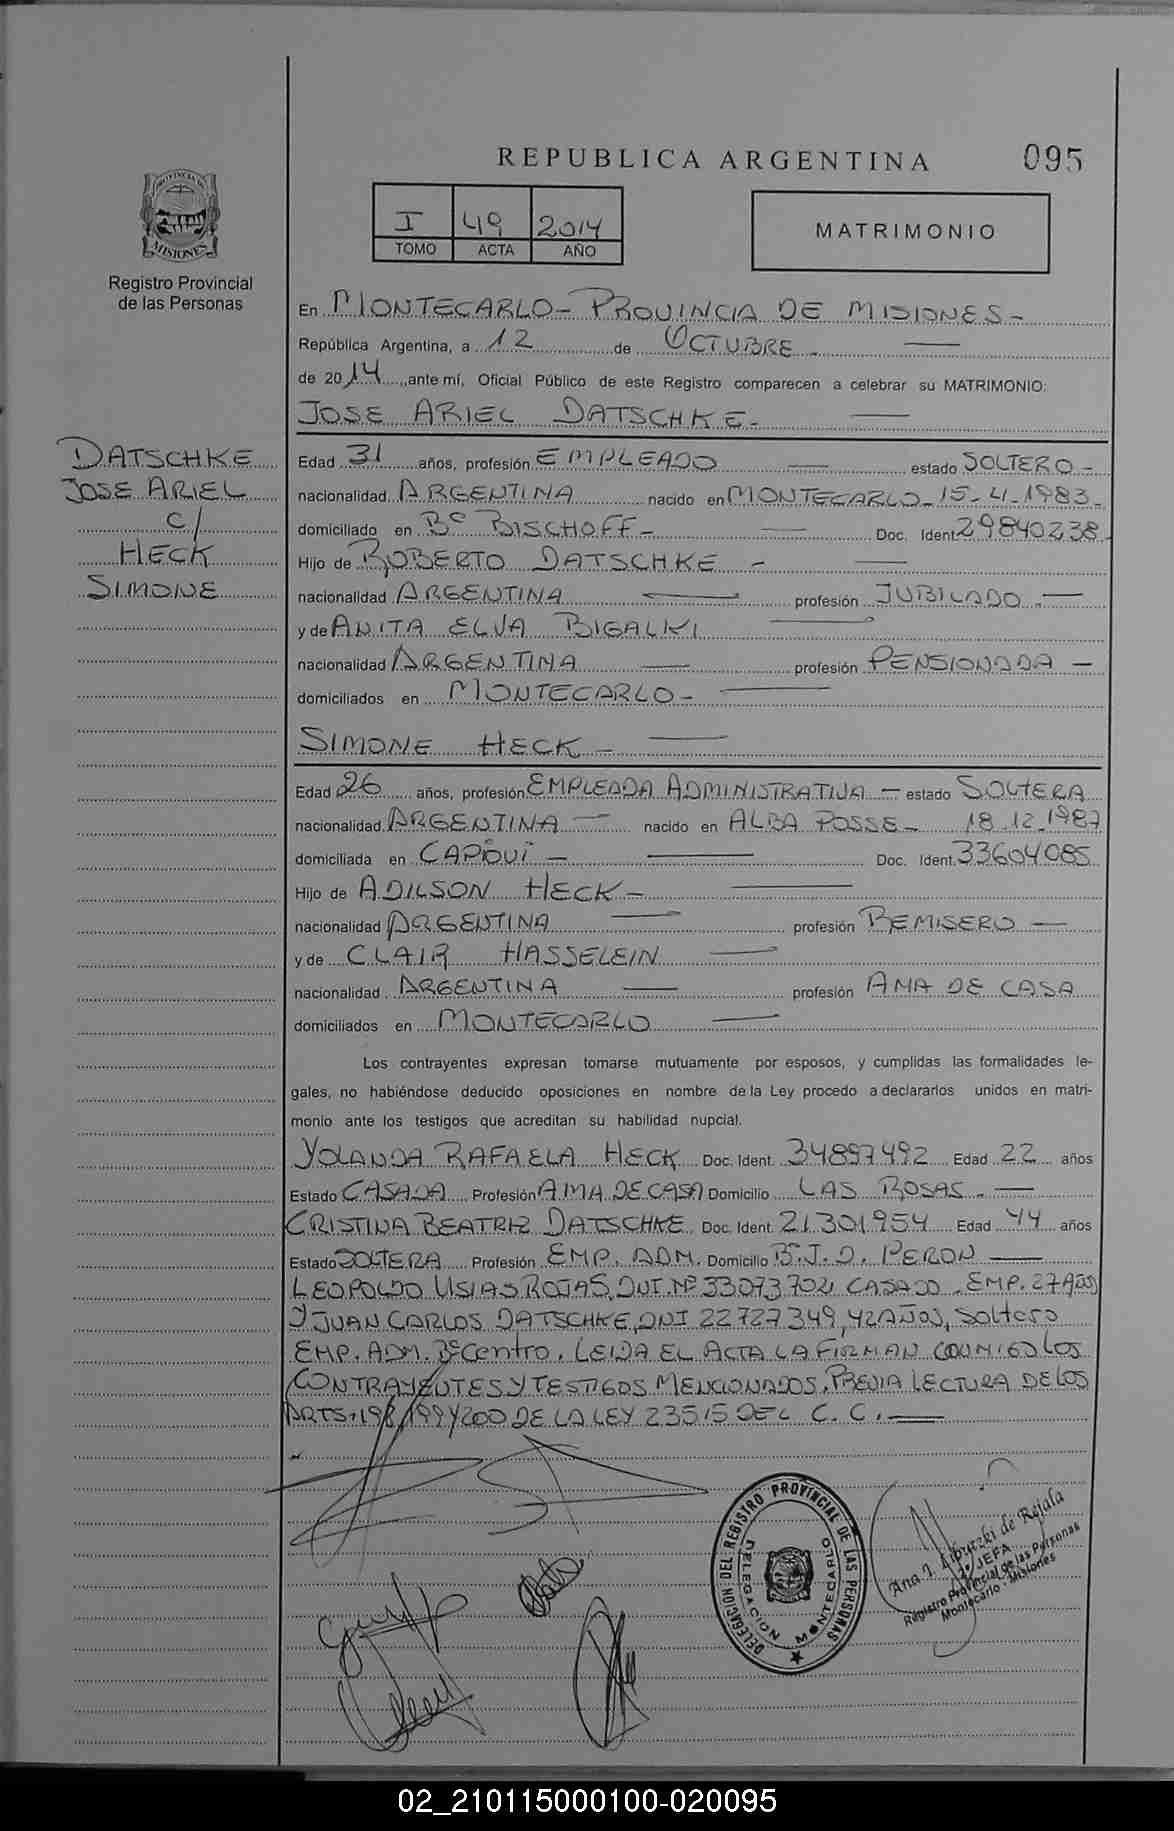 REPUBLICA ARGENTINA
095
PROVINCIA DE
MISIONES
Registro Provincial
de las Personas
I 49 2014
TOMO ACTA AÑO
MATRIMONIO
En MONTECARLO - PROVINCIA DE MISIONES -
República Argentina, a 12 de OCTUBRE -
de 2014, ante mí, Oficial Público de este Registro comparecen a celebrar su MATRIMONIO:
JOSE ARIEL DATSCHKE -
DATSCHKE
JOSE ARIEL
C/
HECK
SIMONE
Edad 31 años, profesión EMPLEADO estado SOLTERO -
nacionalidad ARGENTINA nacido en MONTECARLO - 15-4-1983 -
domiciliado en Bº BISCHOFF - Doc. Ident. 29840238
Hijo de ROBERTO DATSCHKE -
nacionalidad ARGENTINA profesión JUBILADO. -
y de ANITA ELVA BIGALKI
nacionalidad ARGENTINA profesión PENSIONADA -
domiciliados en MONTECARLO -
SIMONE HECK -
Edad 26 años, profesión EMPLEADA ADMINISTRATIVA - estado SOLTERA
nacionalidad ARGENTINA nacido en ALBA POSSE - 18-12-1987
domiciliada en CAPIOVI - Doc. Ident. 33604085
Hijo de ADILSON HECK -
nacionalidad ARGENTINA profesión REMISERO -
y de CLAIR HASSELEIN
nacionalidad ARGENTINA profesión AMA DE CASA
domiciliados en MONTECARLO
Los contrayentes expresan tomarse mutuamente por esposos, y cumplidas las formalidades le-
gales, no habiéndose deducido oposiciones en nombre de la Ley procedo a declararlos unidos en matri-
monio ante los testigos que acreditan su habilidad nupcial.
YOLANDA RAFAELA HECK Doc. Ident. 34897492 Edad 22 años
Estado CASADA Profesión AMA DE CASA Domicilio LAS ROSAS. -
CRISTINA BEATRIZ DATSCHKE Doc. Ident. 21301954 Edad 44 años
Estado SOLTERA Profesión EMP. ADM. Domicilio Bº J. D. PERON
LEOPOLDO USIAS ROJAS, DNI. Nº 33073702, CASADO, EMP. 27 AÑOS
Y JUAN CARLOS DATSCHKE, DNI 22727349, 42 AÑOS, SOLTERO
EMP. ADM. Bº Centro. LEIDA EL ACTA LA FIRMAN CONMIGO LOS
CONTRAYENTES Y TESTIGOS MENCIONADOS, PREVIA LECTURA DE LOS
ARTS. 198, 199 Y 200 DE LA LEY 23515 DEL C. C. -
DELEGACION DEL REGISTRO PROVINCIAL DE LAS PERSONAS
DELEGACION MONTECARLO
Ana de Rejala
JEFA
Registro Provincial de las Personas
Montecarlo - Misiones
02_210115000100-020095